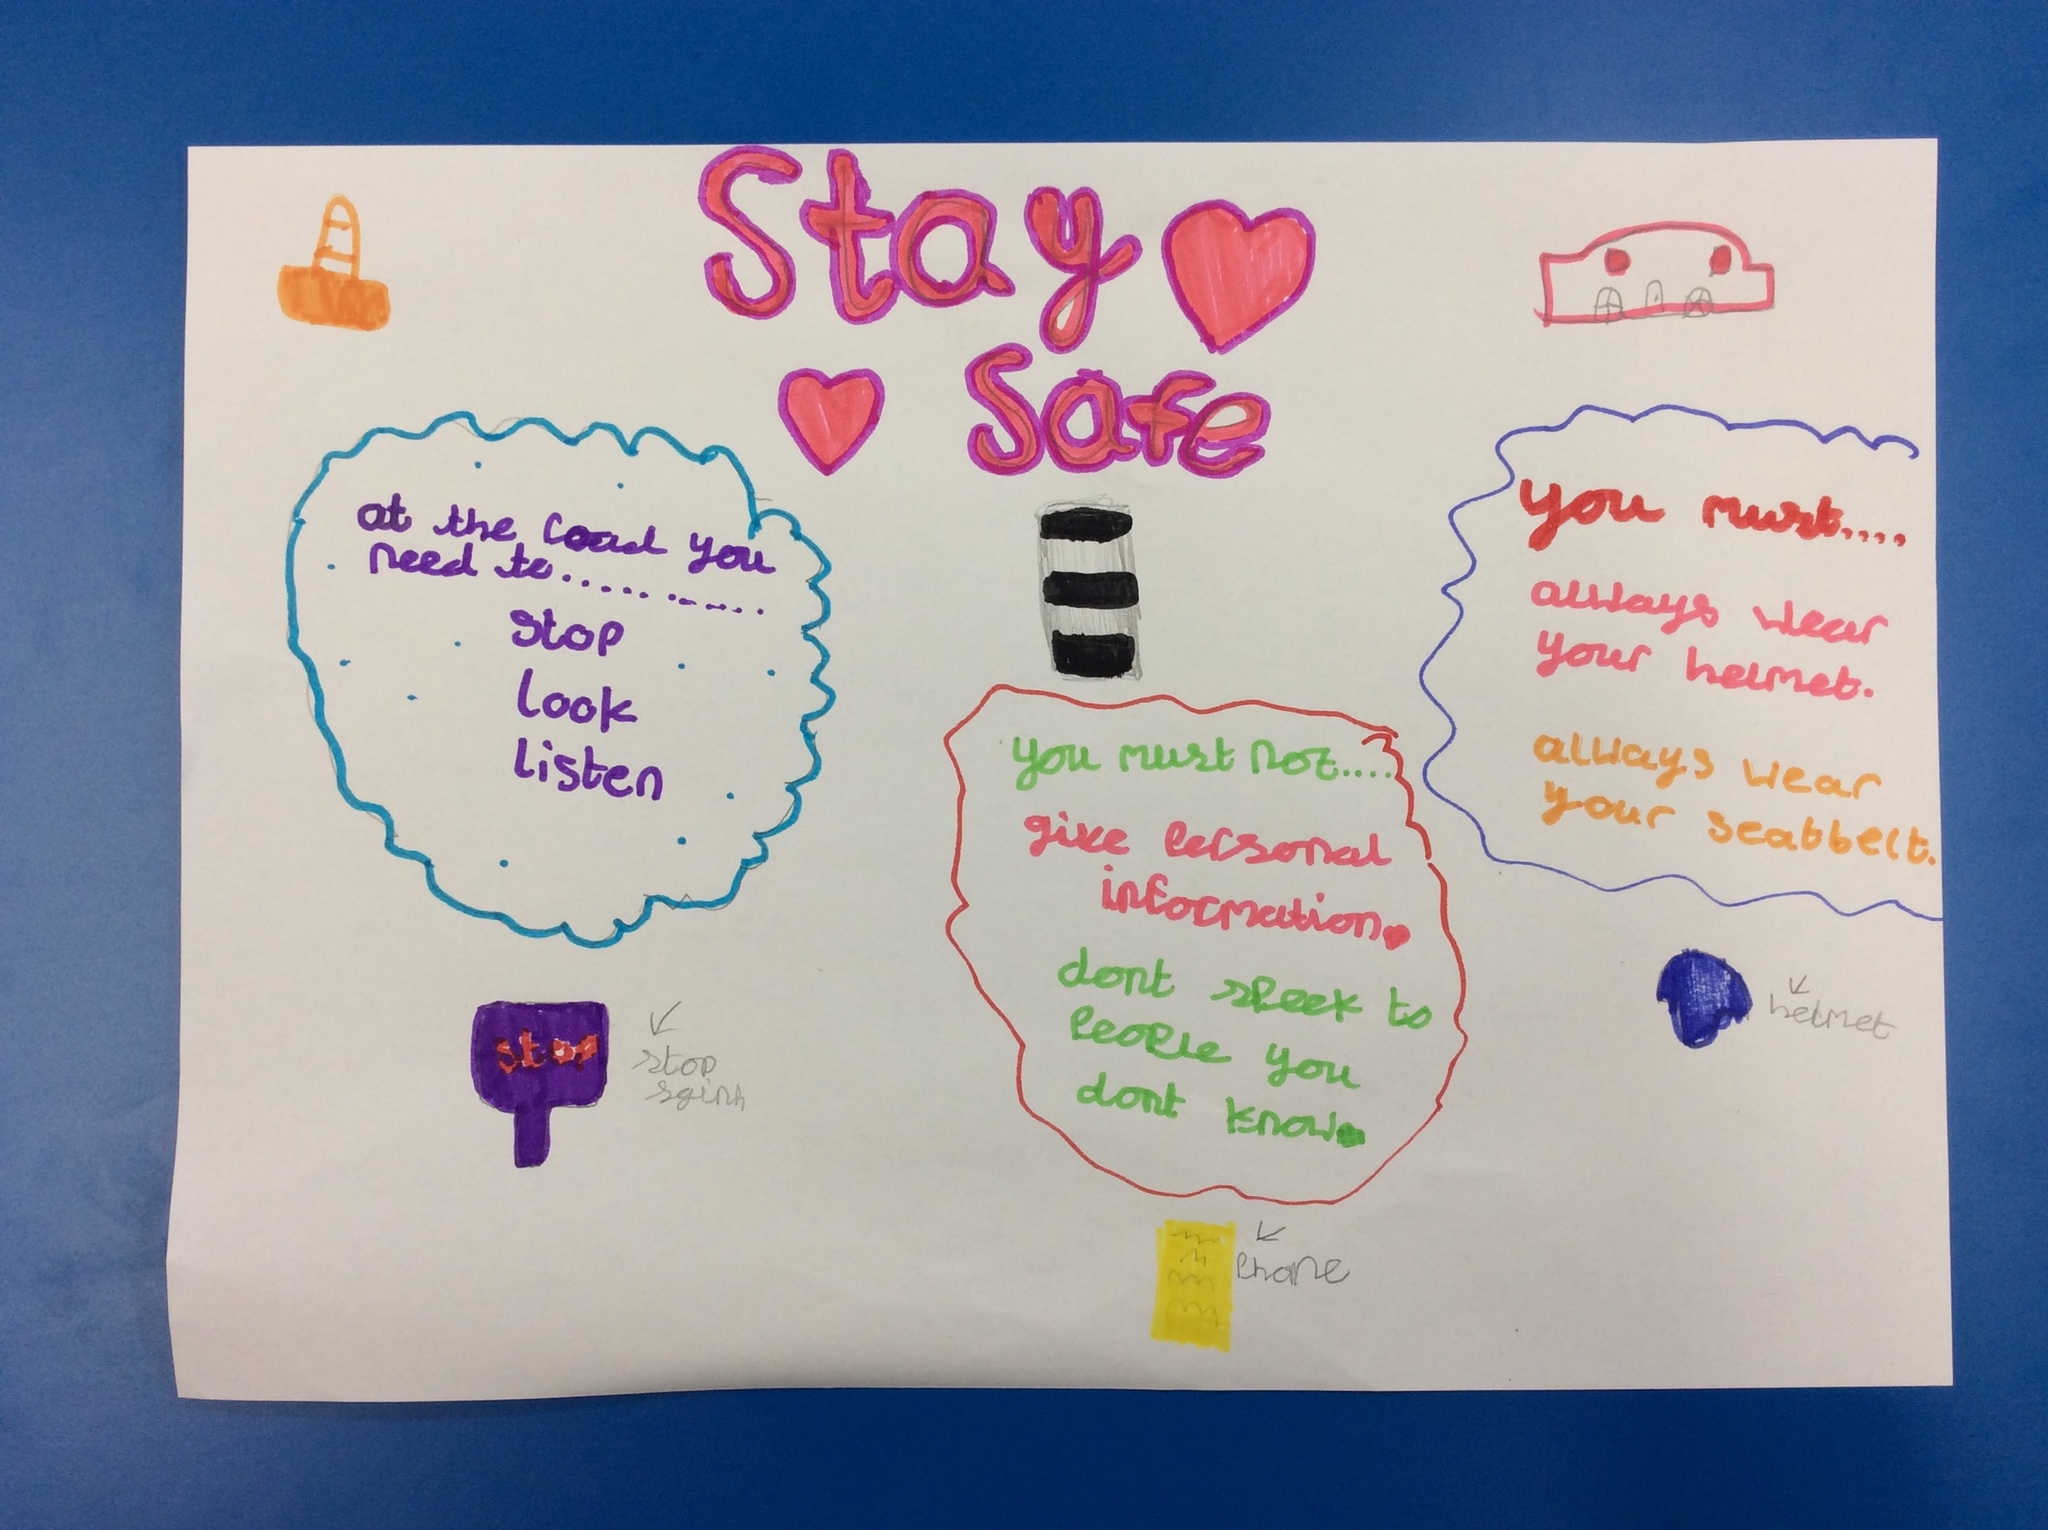 Stay
Safe
at the road you
need to..............
stop
look
listen
stop
stop
sginh
you must not.....
give personal
information.
dont speek to
people you
dont know.
phone
you must....,
always wear
your helmet.
always wear
your seatbelt.
helmet